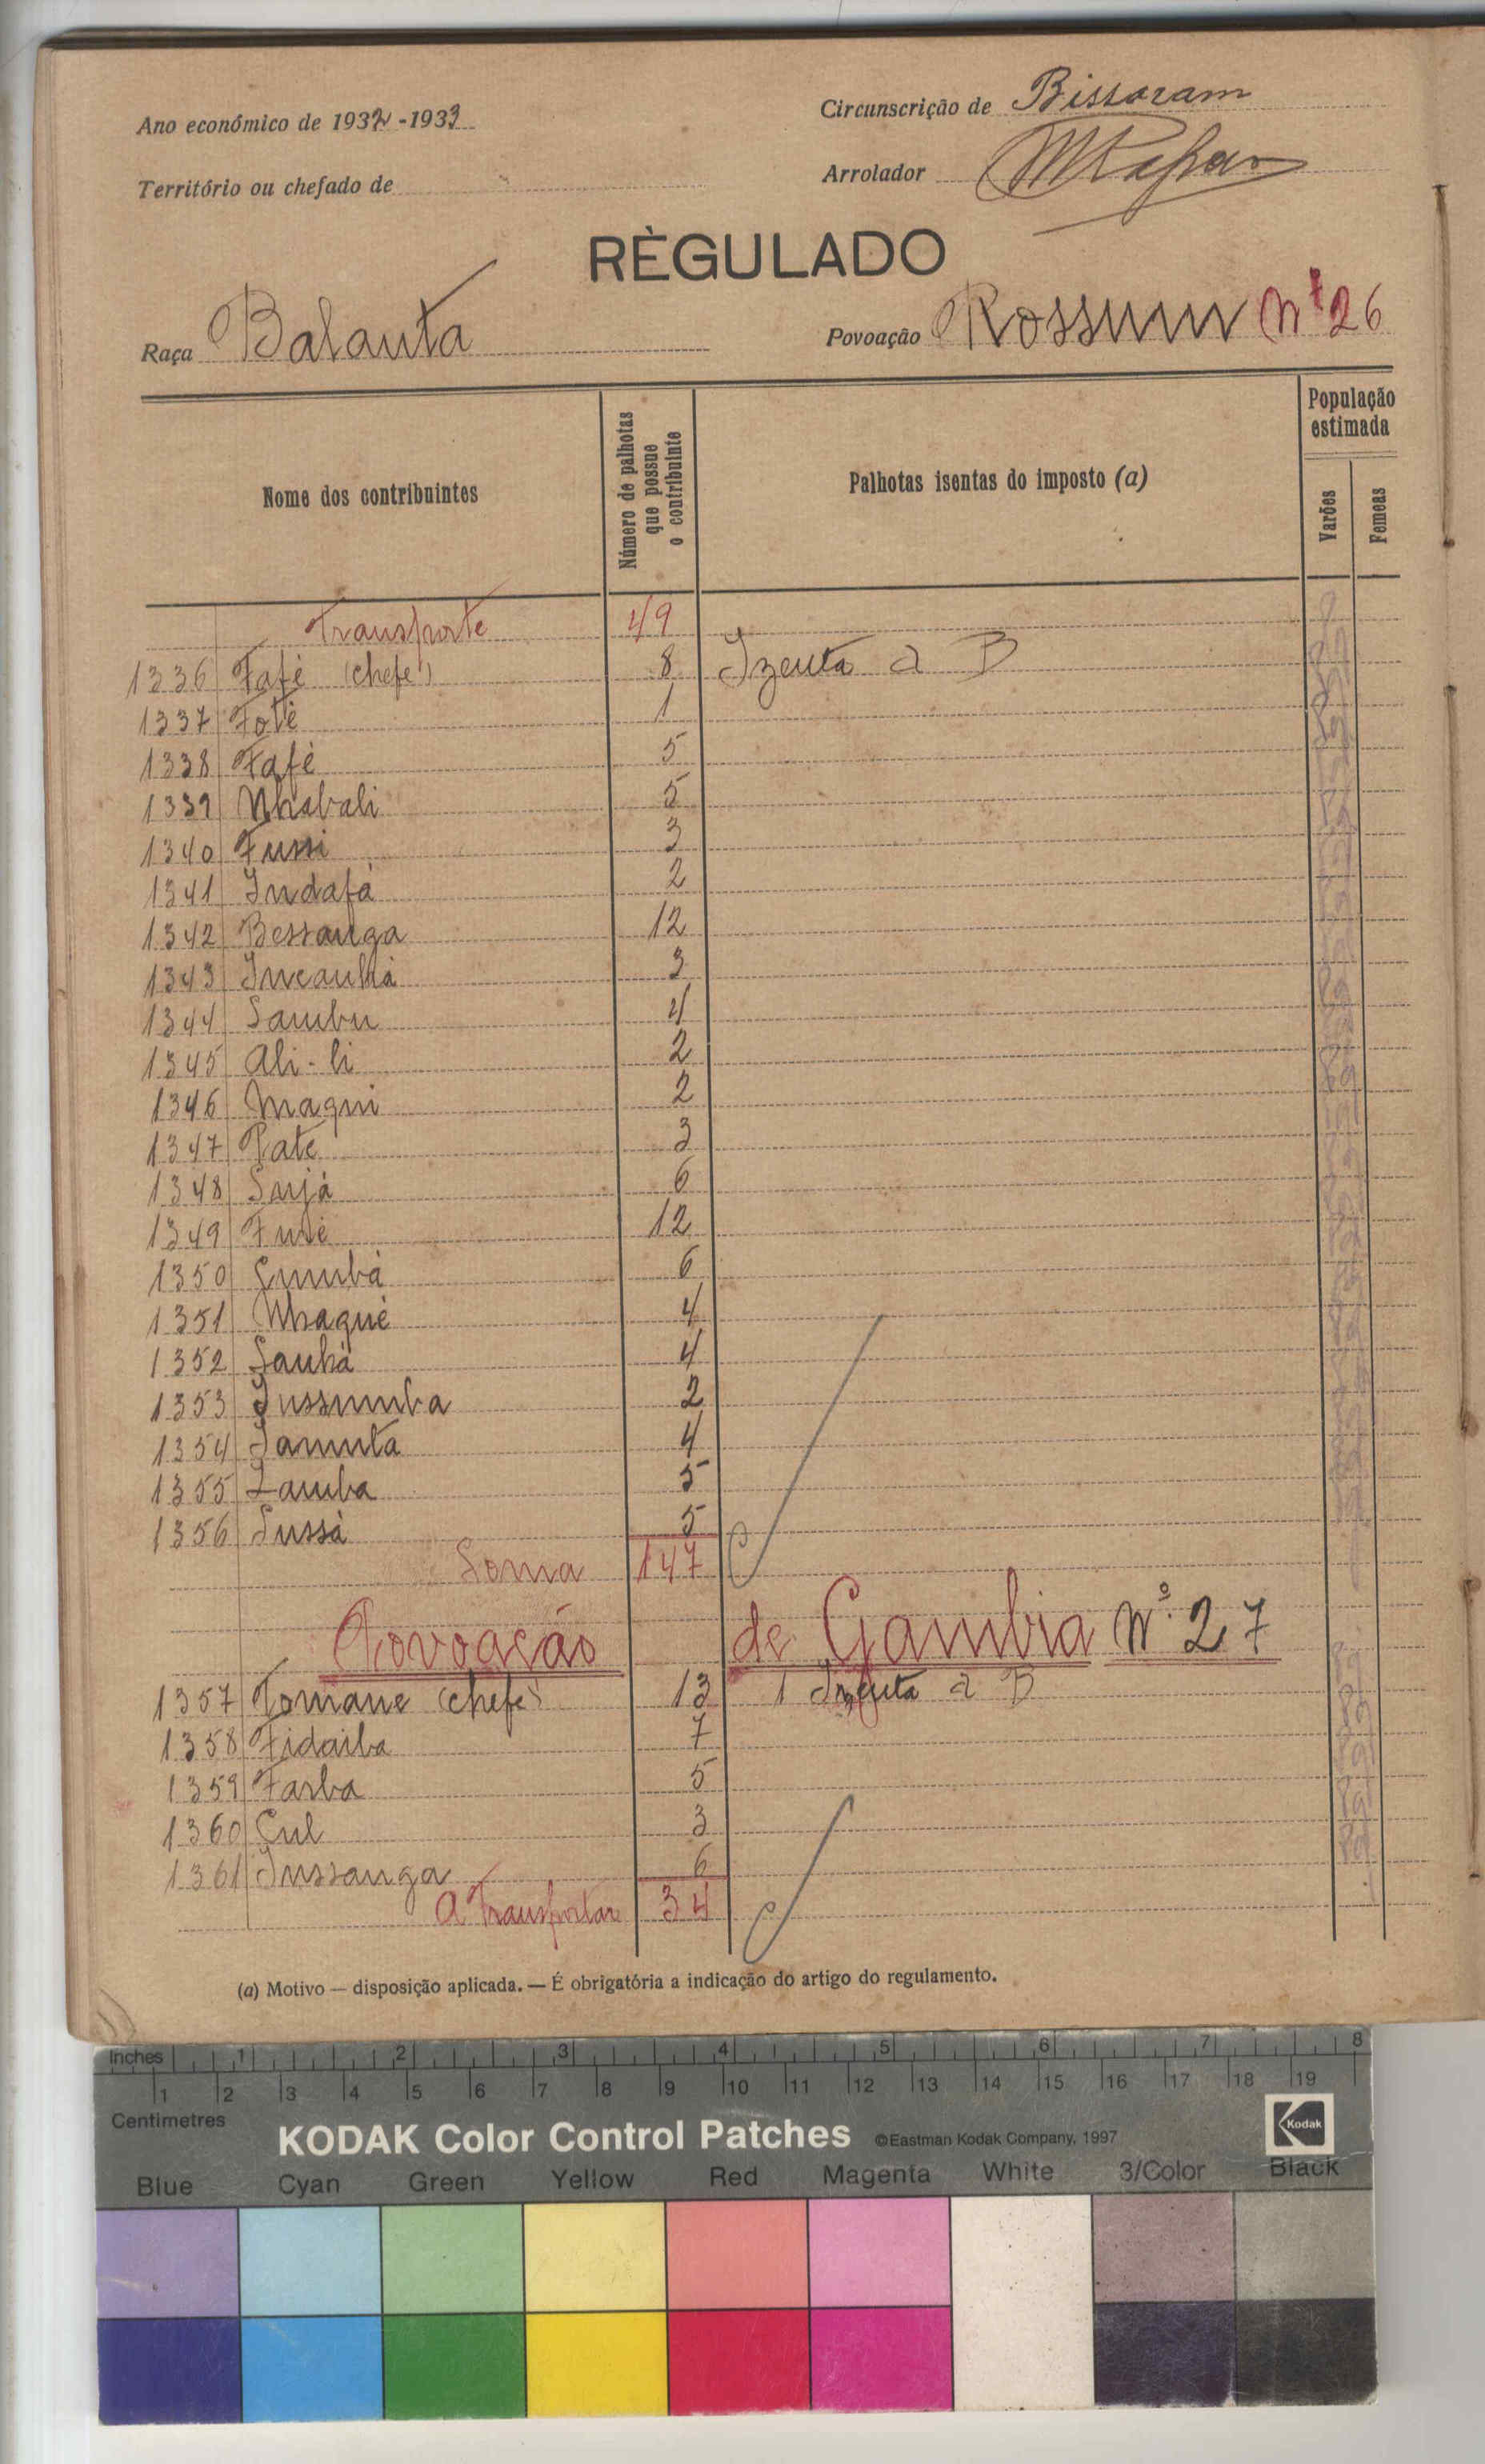 Ano económico de 1932-1933
Circunscrição de Bissoram
Território ou chefado de
Arrolador
RÈGULADO
Raça Balanta
Povoação Rossum Nº 26
Nome dos contribuintes
Número de palhotas que possue o contribuinte
Palhotas isentas do imposto (a)
População estimada
Varões
Femeas
Transporte 49
1336 Fafé (chefe) 8 Izenta a B
1337 Foté 1
1338 Fafé 5
1339 Nhabali 5
1340 Fussi 3
1341 Indafá 2
1342 Bessanga 12
1343 Incanhá 3
1344 Sambu 4
1345 Ali-li 2
1346 Maqui 2
1347 Paté 3
1348 Sujá 6
1349 Fusé 12
1350 Cumbá 6
1351 Nhaqué 4
1352 Sanhá 4
1353 Jussumba 2
1354 Jamuta 4
1355 Lamba 5
1356 Sussá 5
Soma 147
Povoação de Gambia Nº 27
1357 Tomane (chefe) 13 1 Izenta a B
1358 Fidaiba 7
1359 Farba 5
1360 Cul 3
1361 Inssanga 6
A Transportar 34
(a) Motivo — disposição aplicada. — É obrigatória a indicação do artigo do regulamento.
Inches 1 2 3 4 5 6 7 8
1 2 3 4 5 6 7 8 9 10 11 12 13 14 15 16 17 18 19
Centimetres
KODAK Color Control Patches ©Eastman Kodak Company, 1997 Kodak
Blue Cyan Green Yellow Red Magenta White 3/Color Black